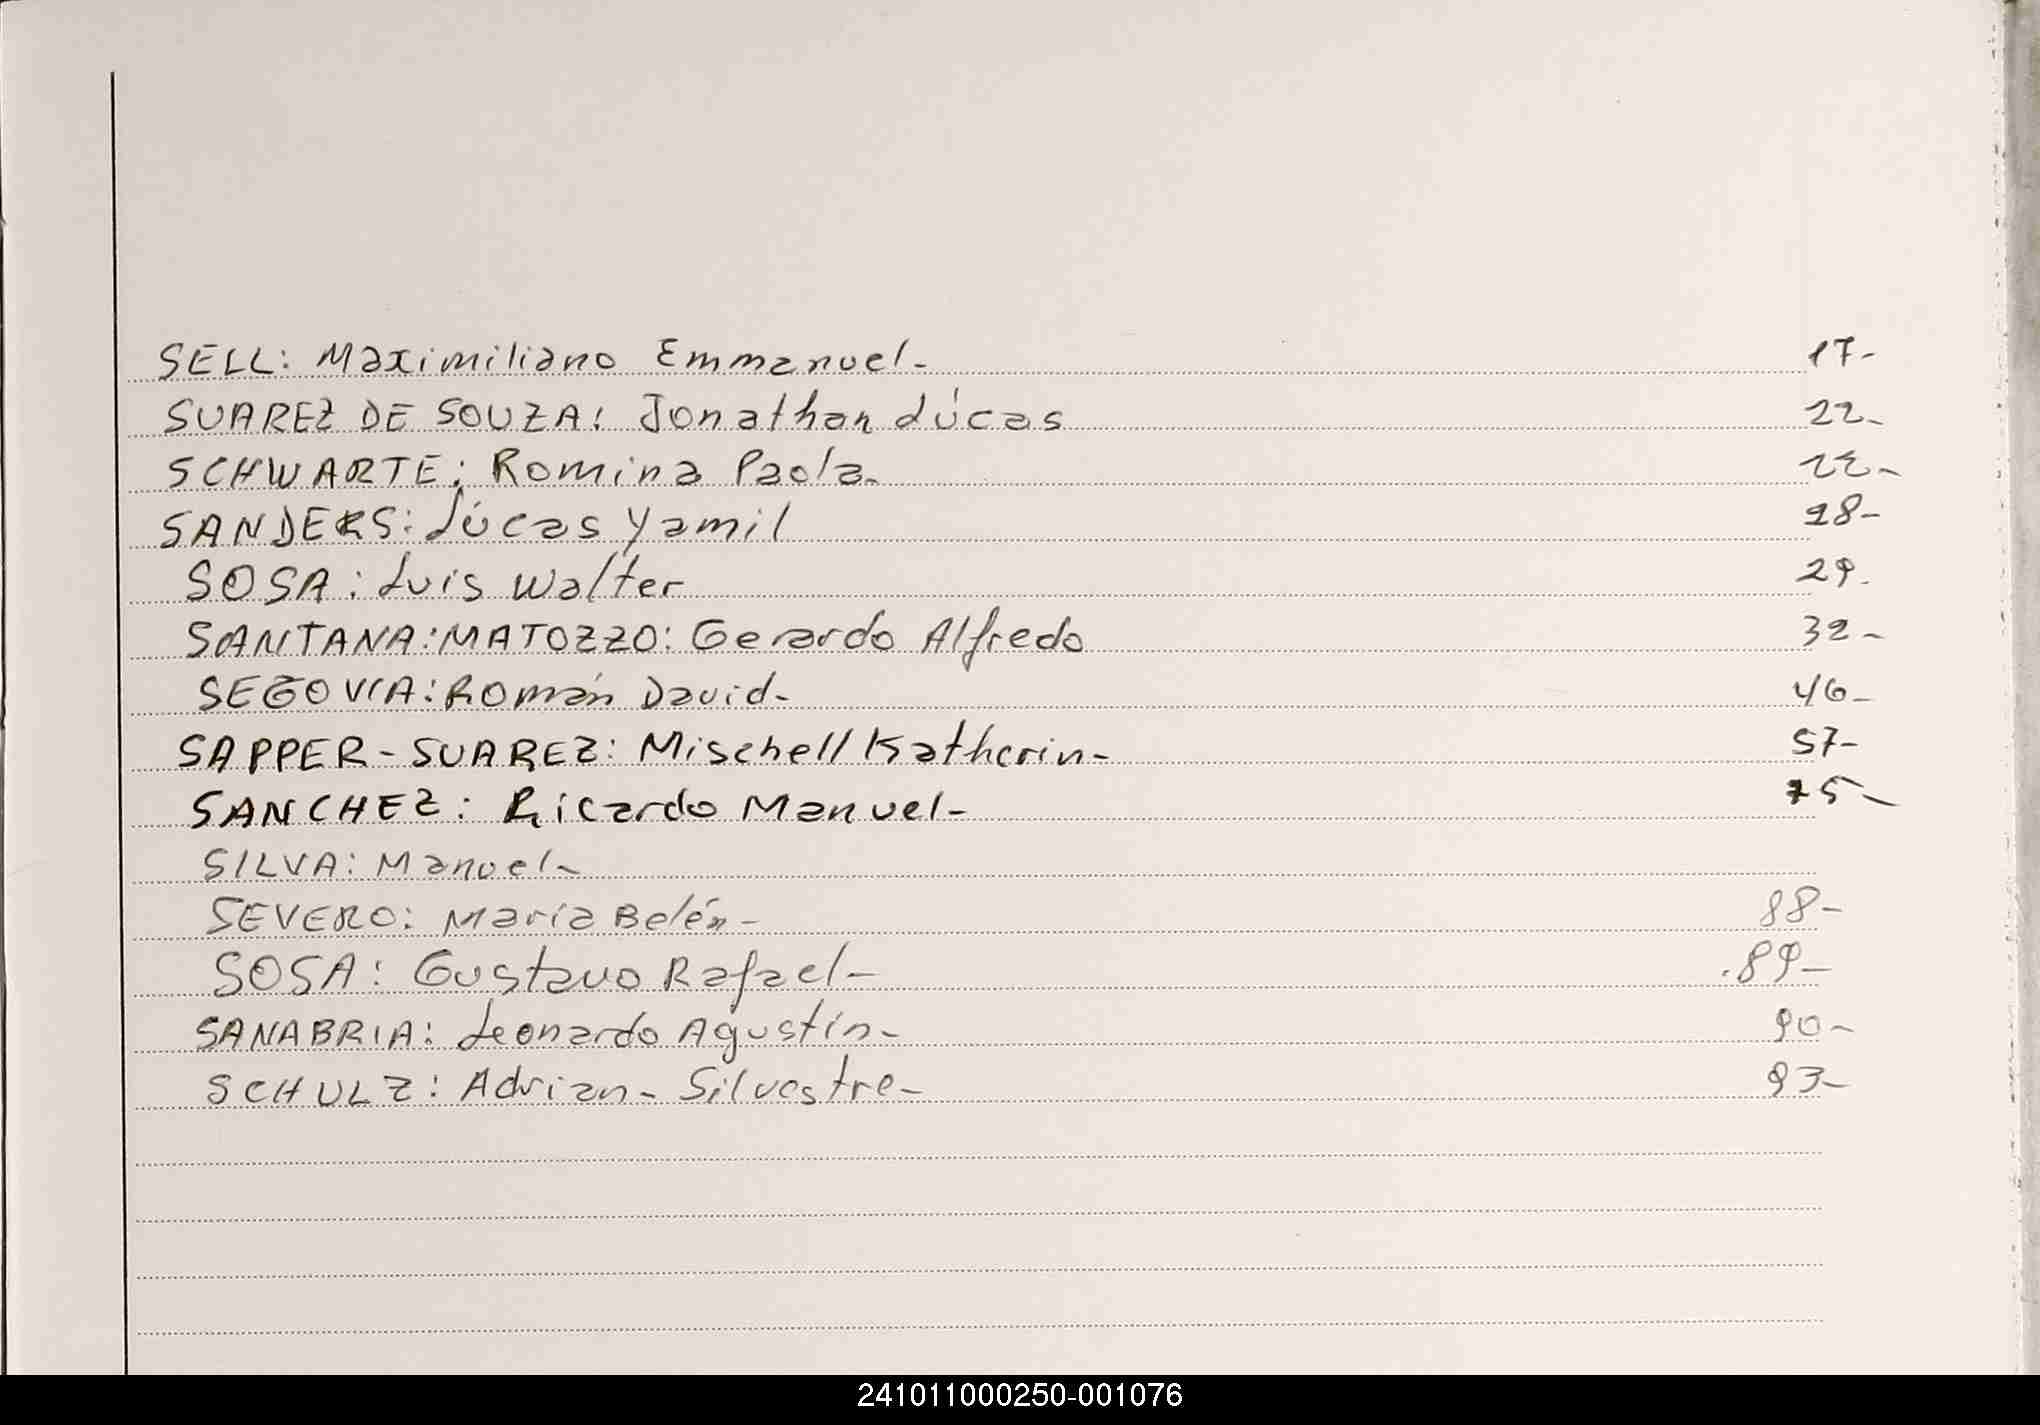 SELL: Maximiliano Emmanuel- 17-
SUAREZ DE SOUZA: Jonathan Lúcas 22-
SCHWARTE: Romina Paola. 22-
SANDERS: Lúcas Yamil 28-
SOSA: Luis Walter 29.
SANTANA:MATOZZO: Gerardo Alfredo 32-
SEGOVIA: Román David- 46-
SAPPER-SUAREZ: Mischell Katherin- 57-
SANCHEZ: Ricardo Manuel- 75-
SILVA: Manuel-
SEVERO: María Belén- 88-
SOSA: Gustavo Rafael- .89-
SANABRIA: Leonardo Agustín- 90-
SCHULZ: Adrian- Silvestre- 93-
241011000250-001076